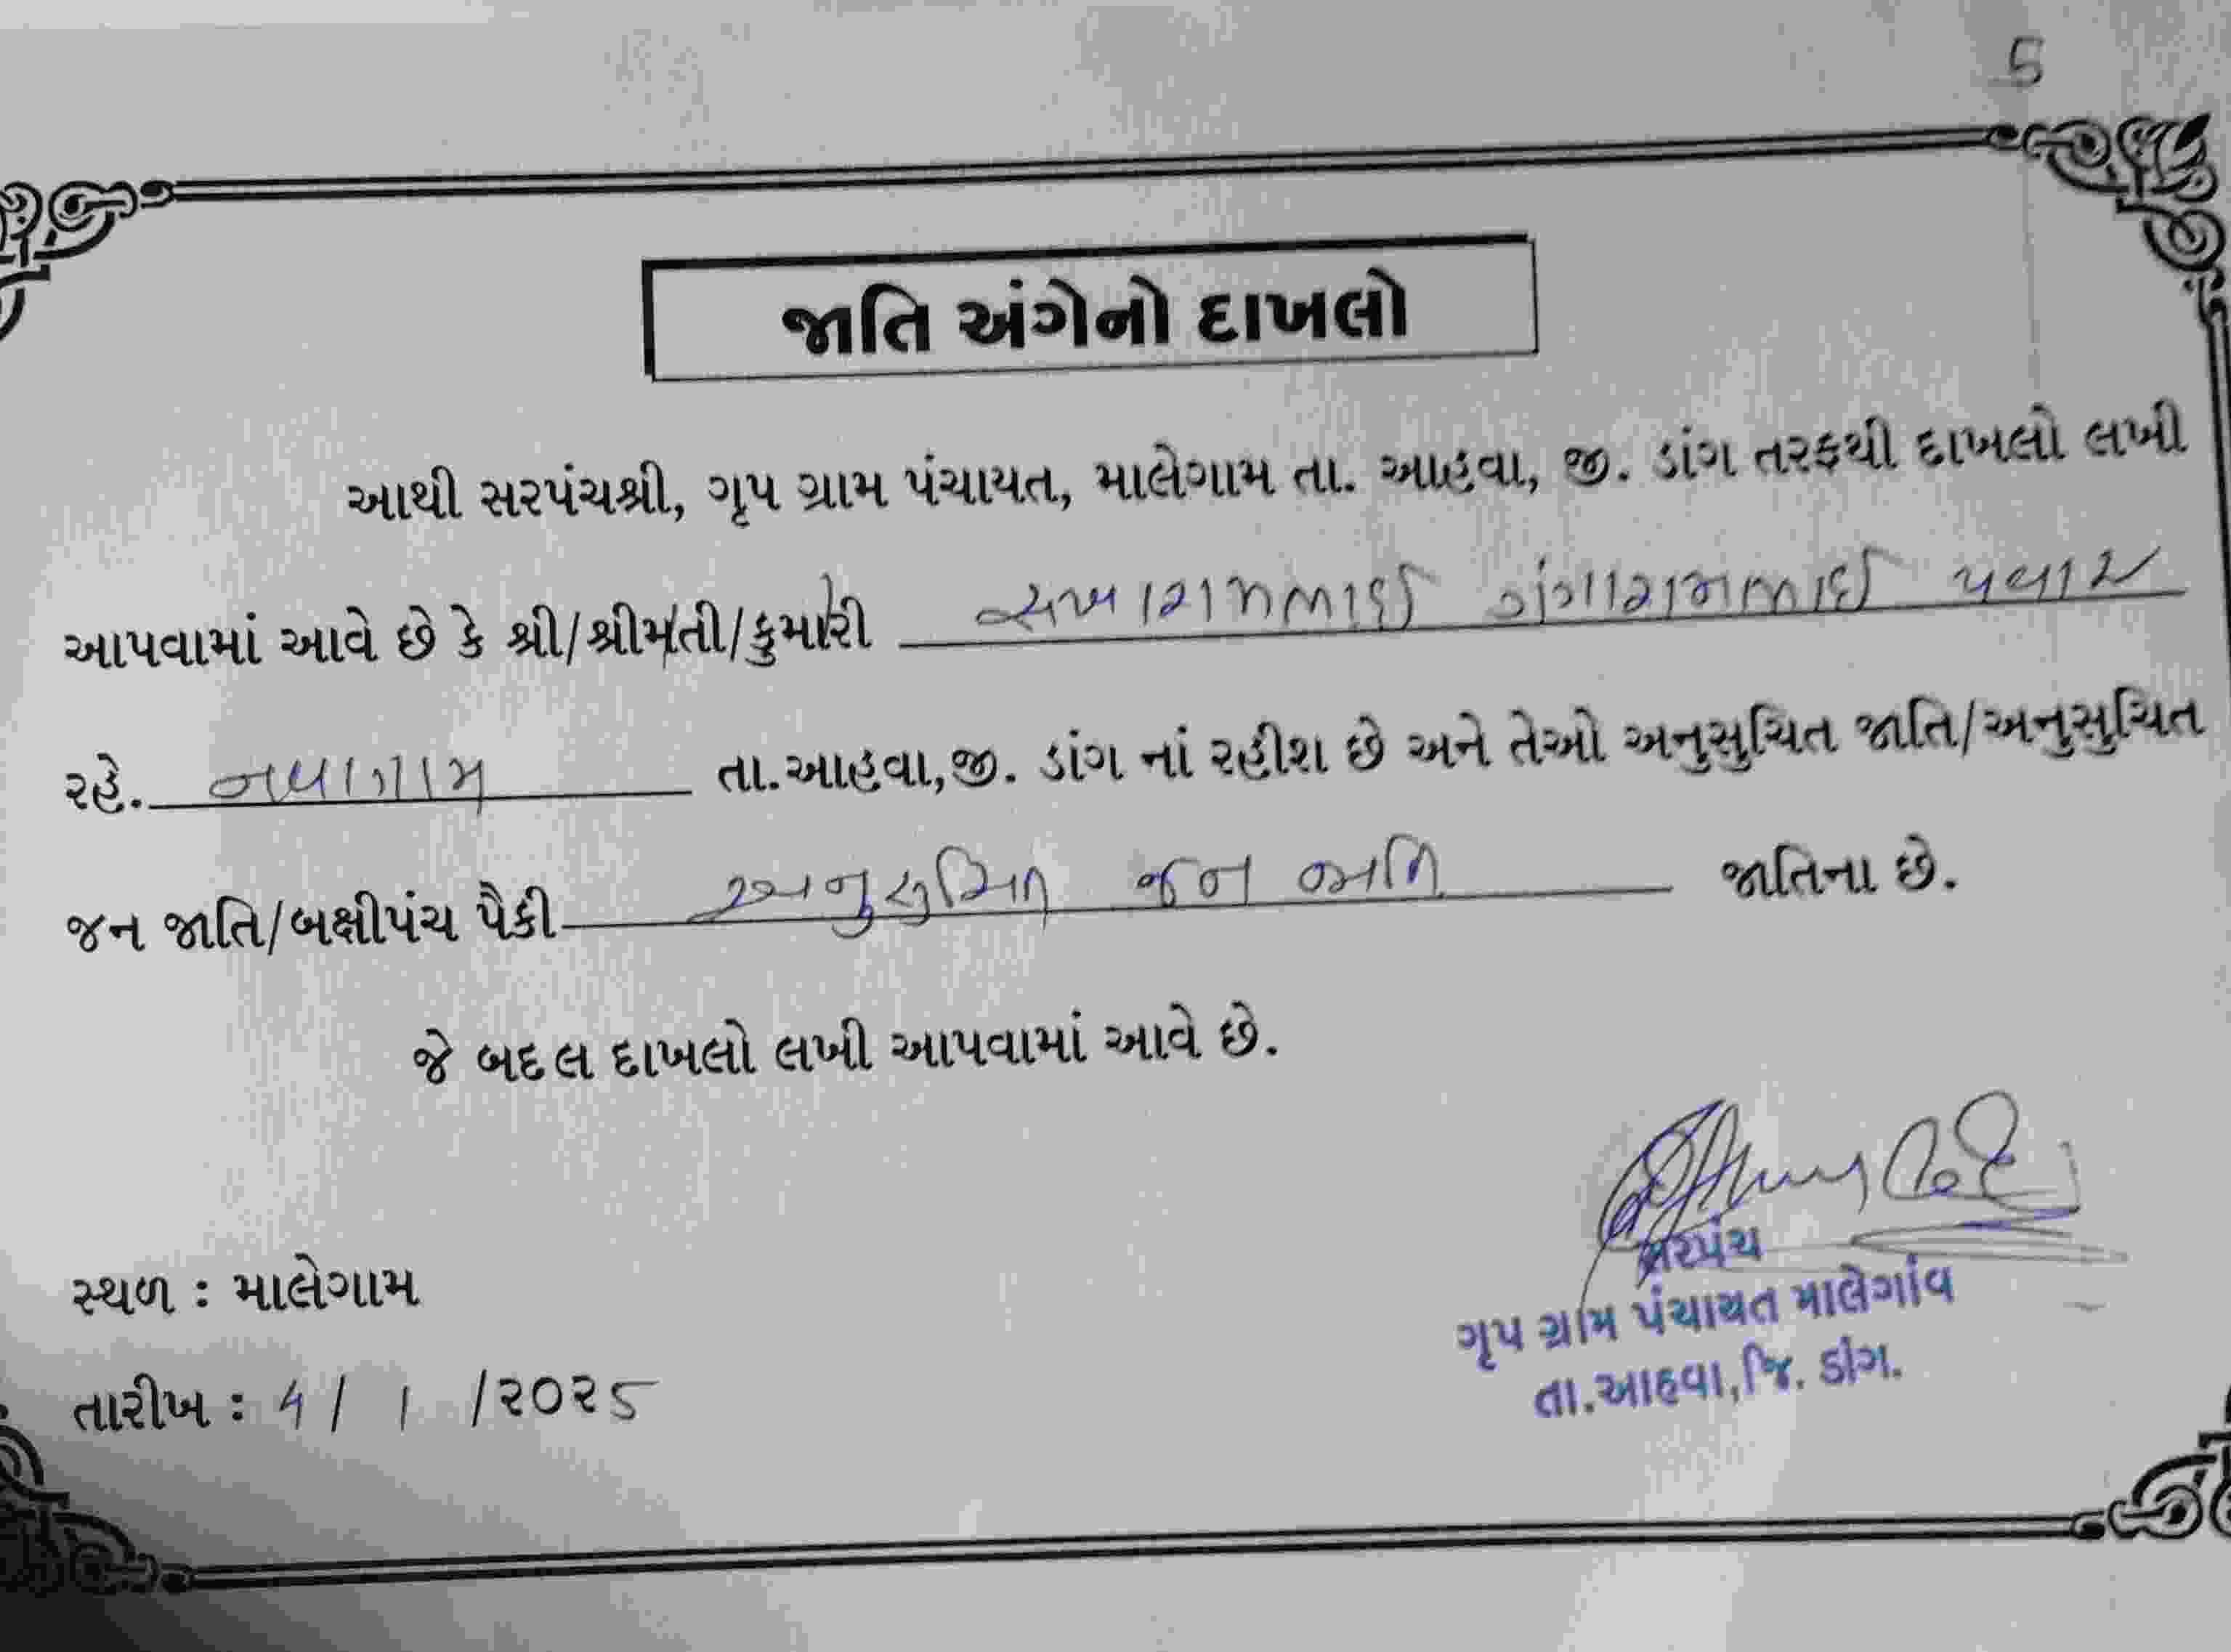 5
જાતિ અંગેનો દાખલો
આથી સરપંચશ્રી, ગૃપ ગ્રામ પંચાયત, માલેગામ તા. આહવા, જી. ડાંગ તરફથી દાખલો લખી
આપવામાં આવે છે કે શ્રી/શ્રીમતી/કુમારી સખારામભાઈ ગંગારામભાઈ પવાર
રહે. નવાગામ તા.આહવા,જી. ડાંગ નાં રહીશ છે અને તેઓ અનુસુચિત જાતિ/અનુસુચિત
જન જાતિ/બક્ષીપંચ પૈકી અનુસુચિત જન જાતિ જાતિના છે.
જે બદલ દાખલો લખી આપવામાં આવે છે.
સરપંચ
સ્થળ : માલેગામ
ગૃપ ગ્રામ પંચાયત માલેગાંવ
તા.આહવા,જિ. ડાંગ.
તારીખ : ૫/ ૧ /૨૦૨૬